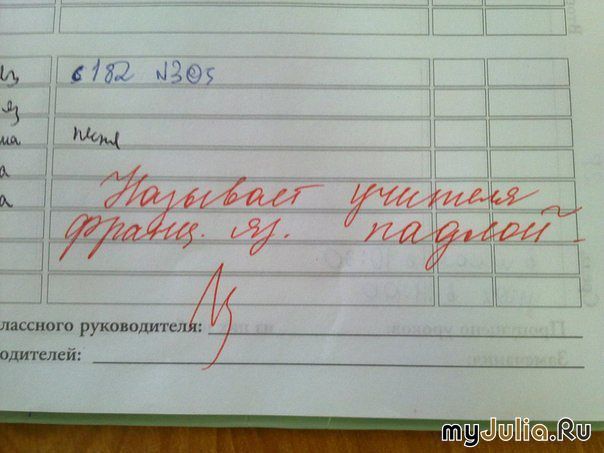 из с 182 N305
яз
ма песня
а
а Называет учителя
франц. яз. падлой
лассного руководителя:
одителей:
myJulia.Ru